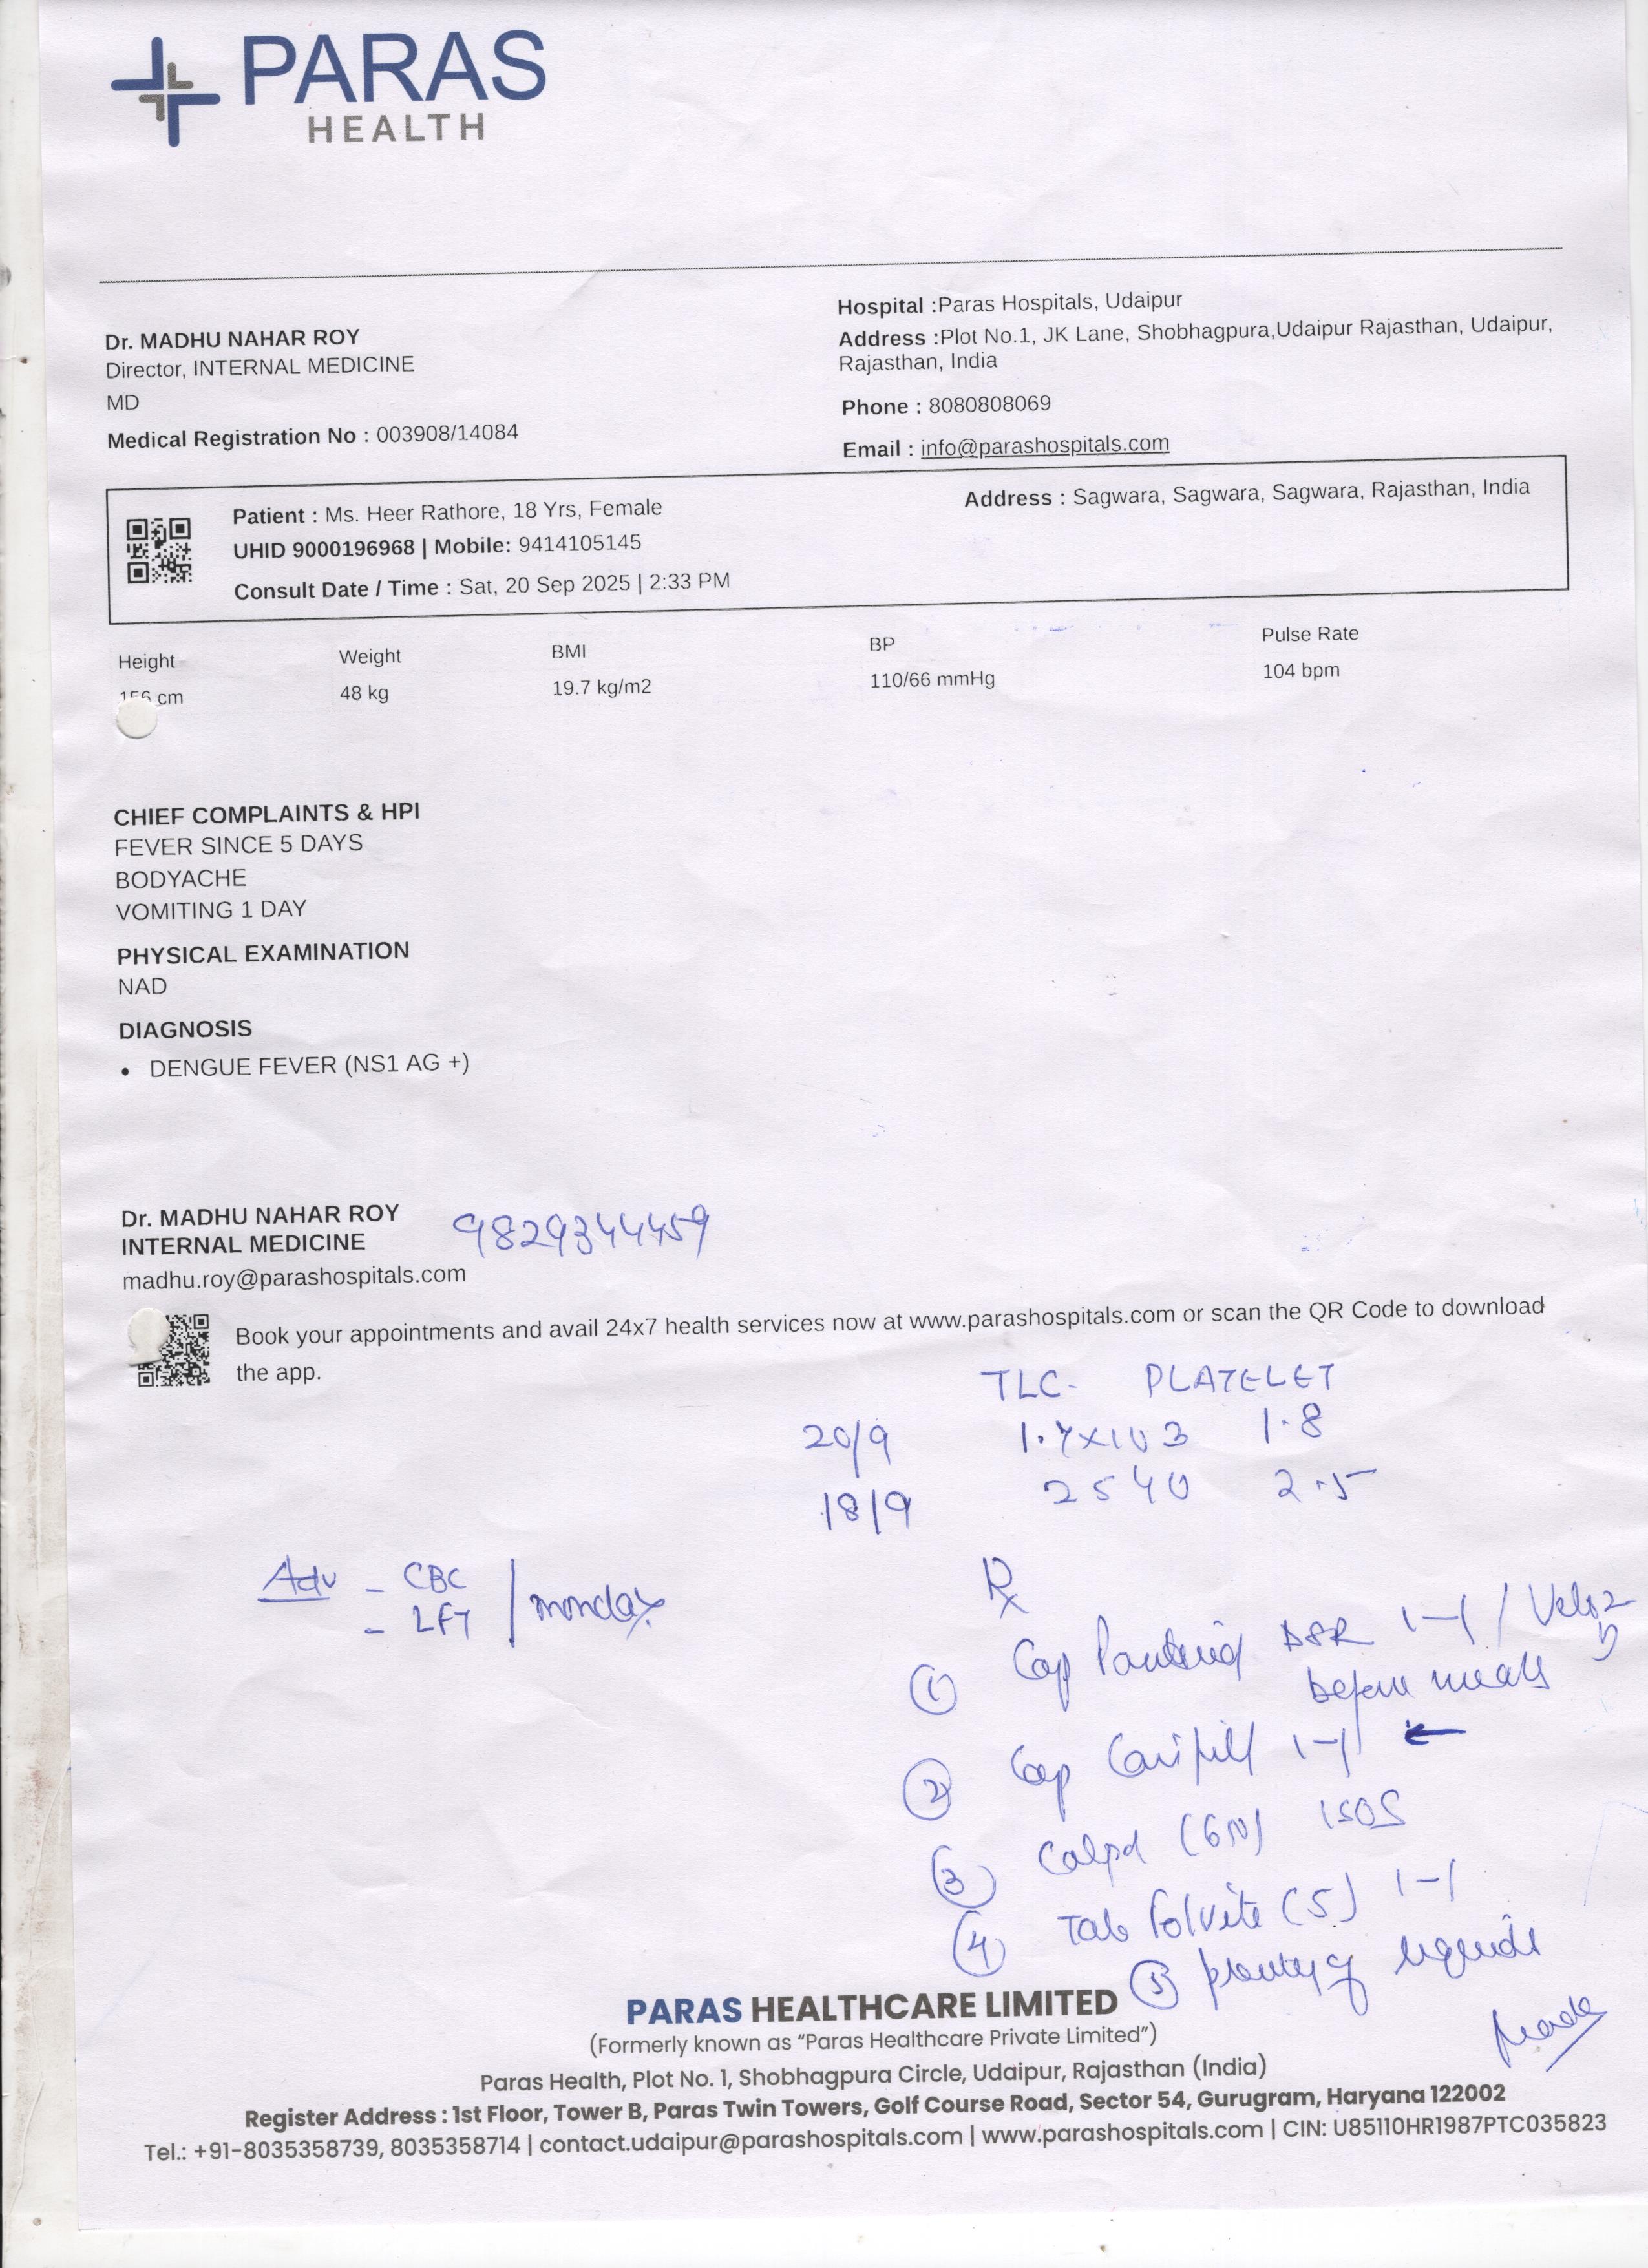 PARAS
HEALTH
Dr. MADHU NAHAR ROY
Director, INTERNAL MEDICINE
MD
Medical Registration No : 003908/14084
Hospital :Paras Hospitals, Udaipur
Address :Plot No.1, JK Lane, Shobhagpura,Udaipur Rajasthan, Udaipur,
Rajasthan, India
Phone : 8080808069
Email : info@parashospitals.com
Patient : Ms. Heer Rathore, 18 Yrs, Female
UHID 9000196968 | Mobile: 9414105145
Consult Date / Time : Sat, 20 Sep 2025 | 2:33 PM
Address : Sagwara, Sagwara, Sagwara, Rajasthan, India
Height Weight BMI BP Pulse Rate
156 cm 48 kg 19.7 kg/m2 110/66 mmHg 104 bpm
CHIEF COMPLAINTS & HPI
FEVER SINCE 5 DAYS
BODYACHE
VOMITING 1 DAY
PHYSICAL EXAMINATION
NAD
DIAGNOSIS
• DENGUE FEVER (NS1 AG +)
Dr. MADHU NAHAR ROY
INTERNAL MEDICINE
9829344459
madhu.roy@parashospitals.com
Book your appointments and avail 24x7 health services now at www.parashospitals.com or scan the QR Code to download
the app.
TLC- PLATELET
20/9 1.8
18/9 2540 2.5
Adv - CBC
- LFT / monday
Rx
① Cap DSR 1-1 /
before meals
② Cap 1-1 ←
③ 1SOS
④ Tab Folvite (5) 1-1
⑤ plenty of liquids
PARAS HEALTHCARE LIMITED
(Formerly known as “Paras Healthcare Private Limited”)
Paras Health, Plot No. 1, Shobhagpura Circle, Udaipur, Rajasthan (India)
Register Address : 1st Floor, Tower B, Paras Twin Towers, Golf Course Road, Sector 54, Gurugram, Haryana 122002
Tel.: +91-8035358739, 8035358714 | contact.udaipur@parashospitals.com | www.parashospitals.com | CIN: U85110HR1987PTC035823